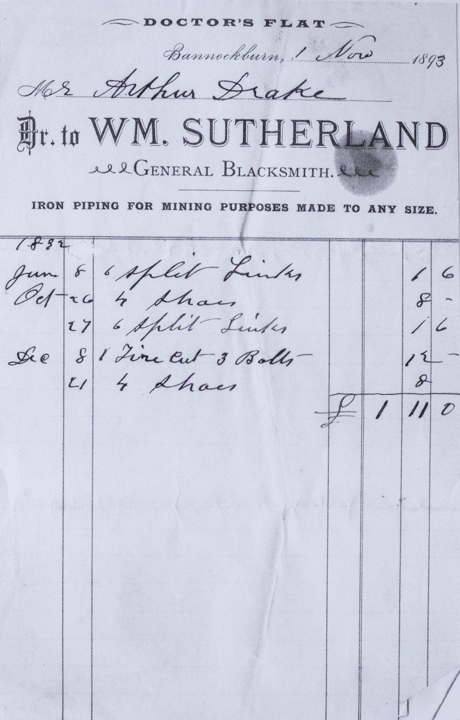 DOCTOR'S FLAT
Bannockburn, 1 Nov 1893
Mr Arthur Drake
Dr. to WM. SUTHERLAND
GENERAL BLACKSMITH.
IRON PIPING FOR MINING PURPOSES MADE TO ANY SIZE.
1892
June 8 6 split Links 1 6
Oct 26 4 Shoes 8 -
27 6 split Links 1 6
Dec 8 1 Tire cut 3 Bolts 12 -
21 4 Shoes 8
£ 1 11 0